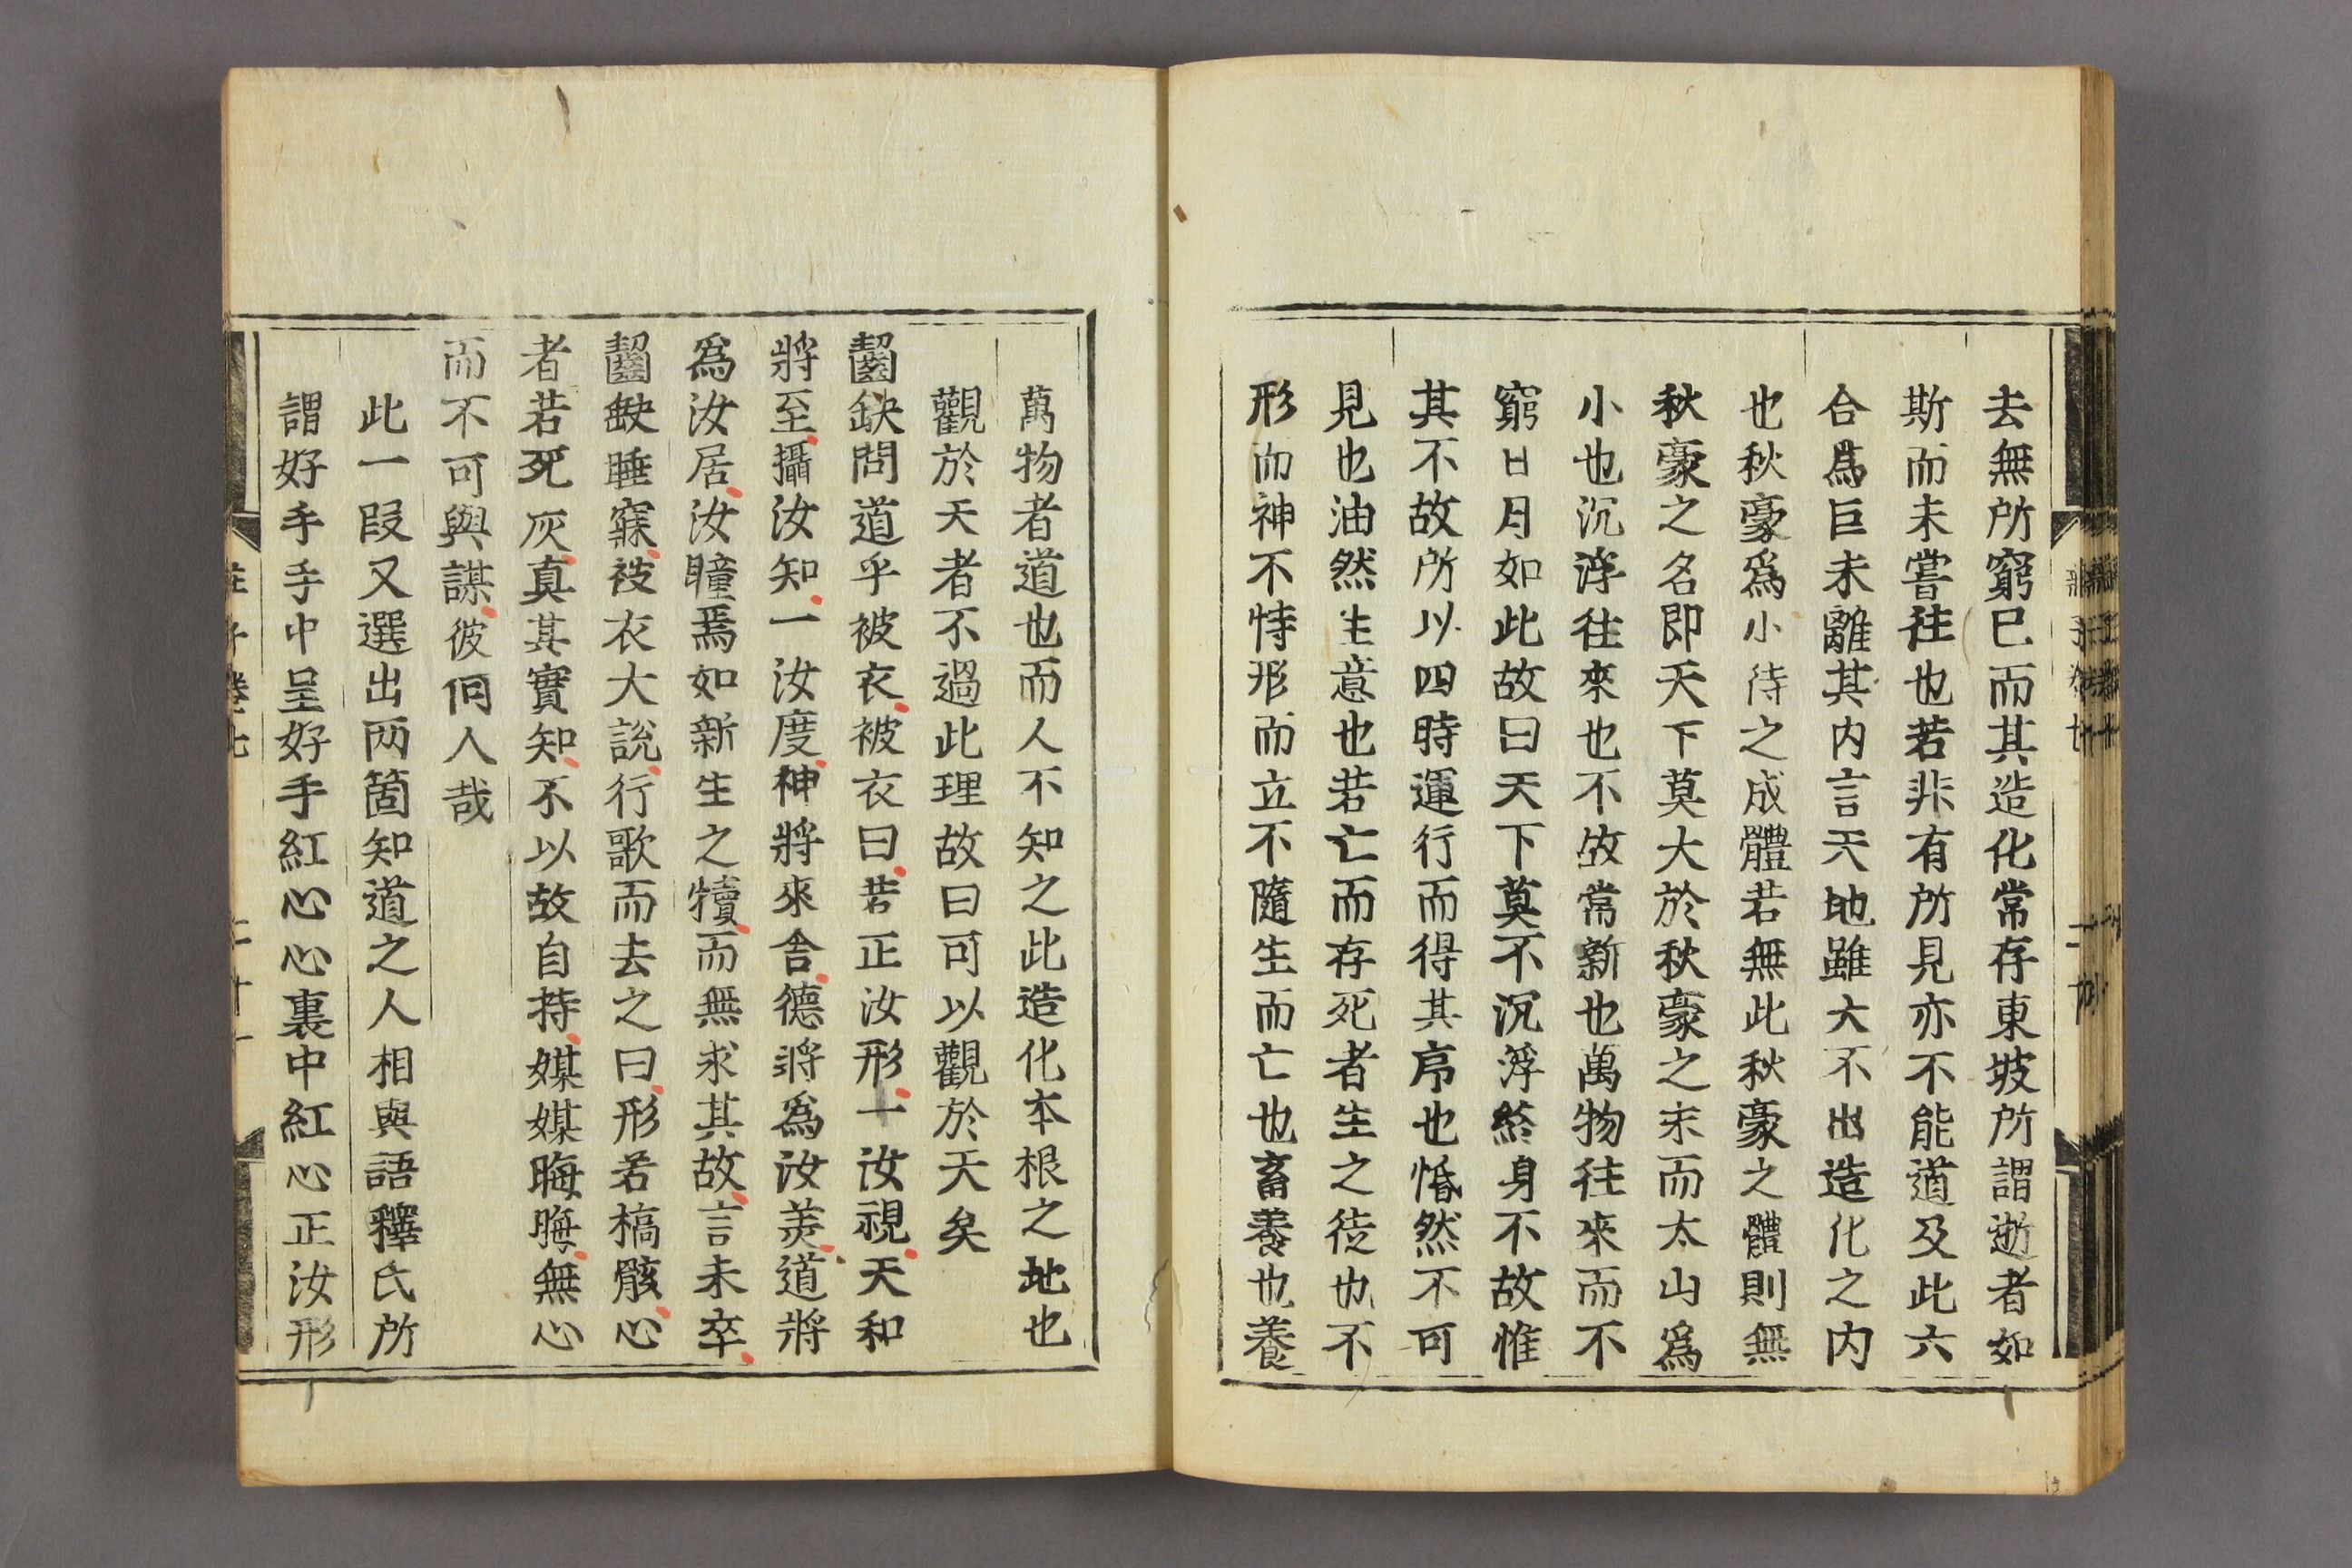 去無所窮巳而其造化常存東坡所謂逝者如
斯而未嘗往也若非有所見亦不能道及此六
合爲巨未離其内言天地雖大不出造化之内
也秋豪爲小待之成體若無此秋豪之體則無
秋豪之名即天下莫大於秋豪之末而太山爲
小也沉浮往來也不故常新也萬物往來而不
窮日月如此故曰天下莫不沉浮終身不故惟
其不故所以四時運行而得其序也惛然不可
見也油然生意也若亡而存死者生之徒也不
形而神不恃形而立不隨生而亡也畜養也養
萬物者道也而人不知之此造化本根之地也
觀於天者不過此理故曰可以觀於天矣
齧缺問道乎被衣被衣曰若正汝形一汝視天和
將至攝汝知一汝度神將來舍德將爲汝美道將
爲汝居汝瞳焉如新生之犢而無求其故言未卒
齧缺睡寐被衣大說行歌而去之曰形若槁骸心
者若死灰真其實知不以故自持媒媒晦晦無心
而不可與謀彼何人哉
此一段又選出两箇知道之人相與語釋氏所
謂好手手中呈好手紅心心裏中紅心正汝形
莊子卷七
二十一